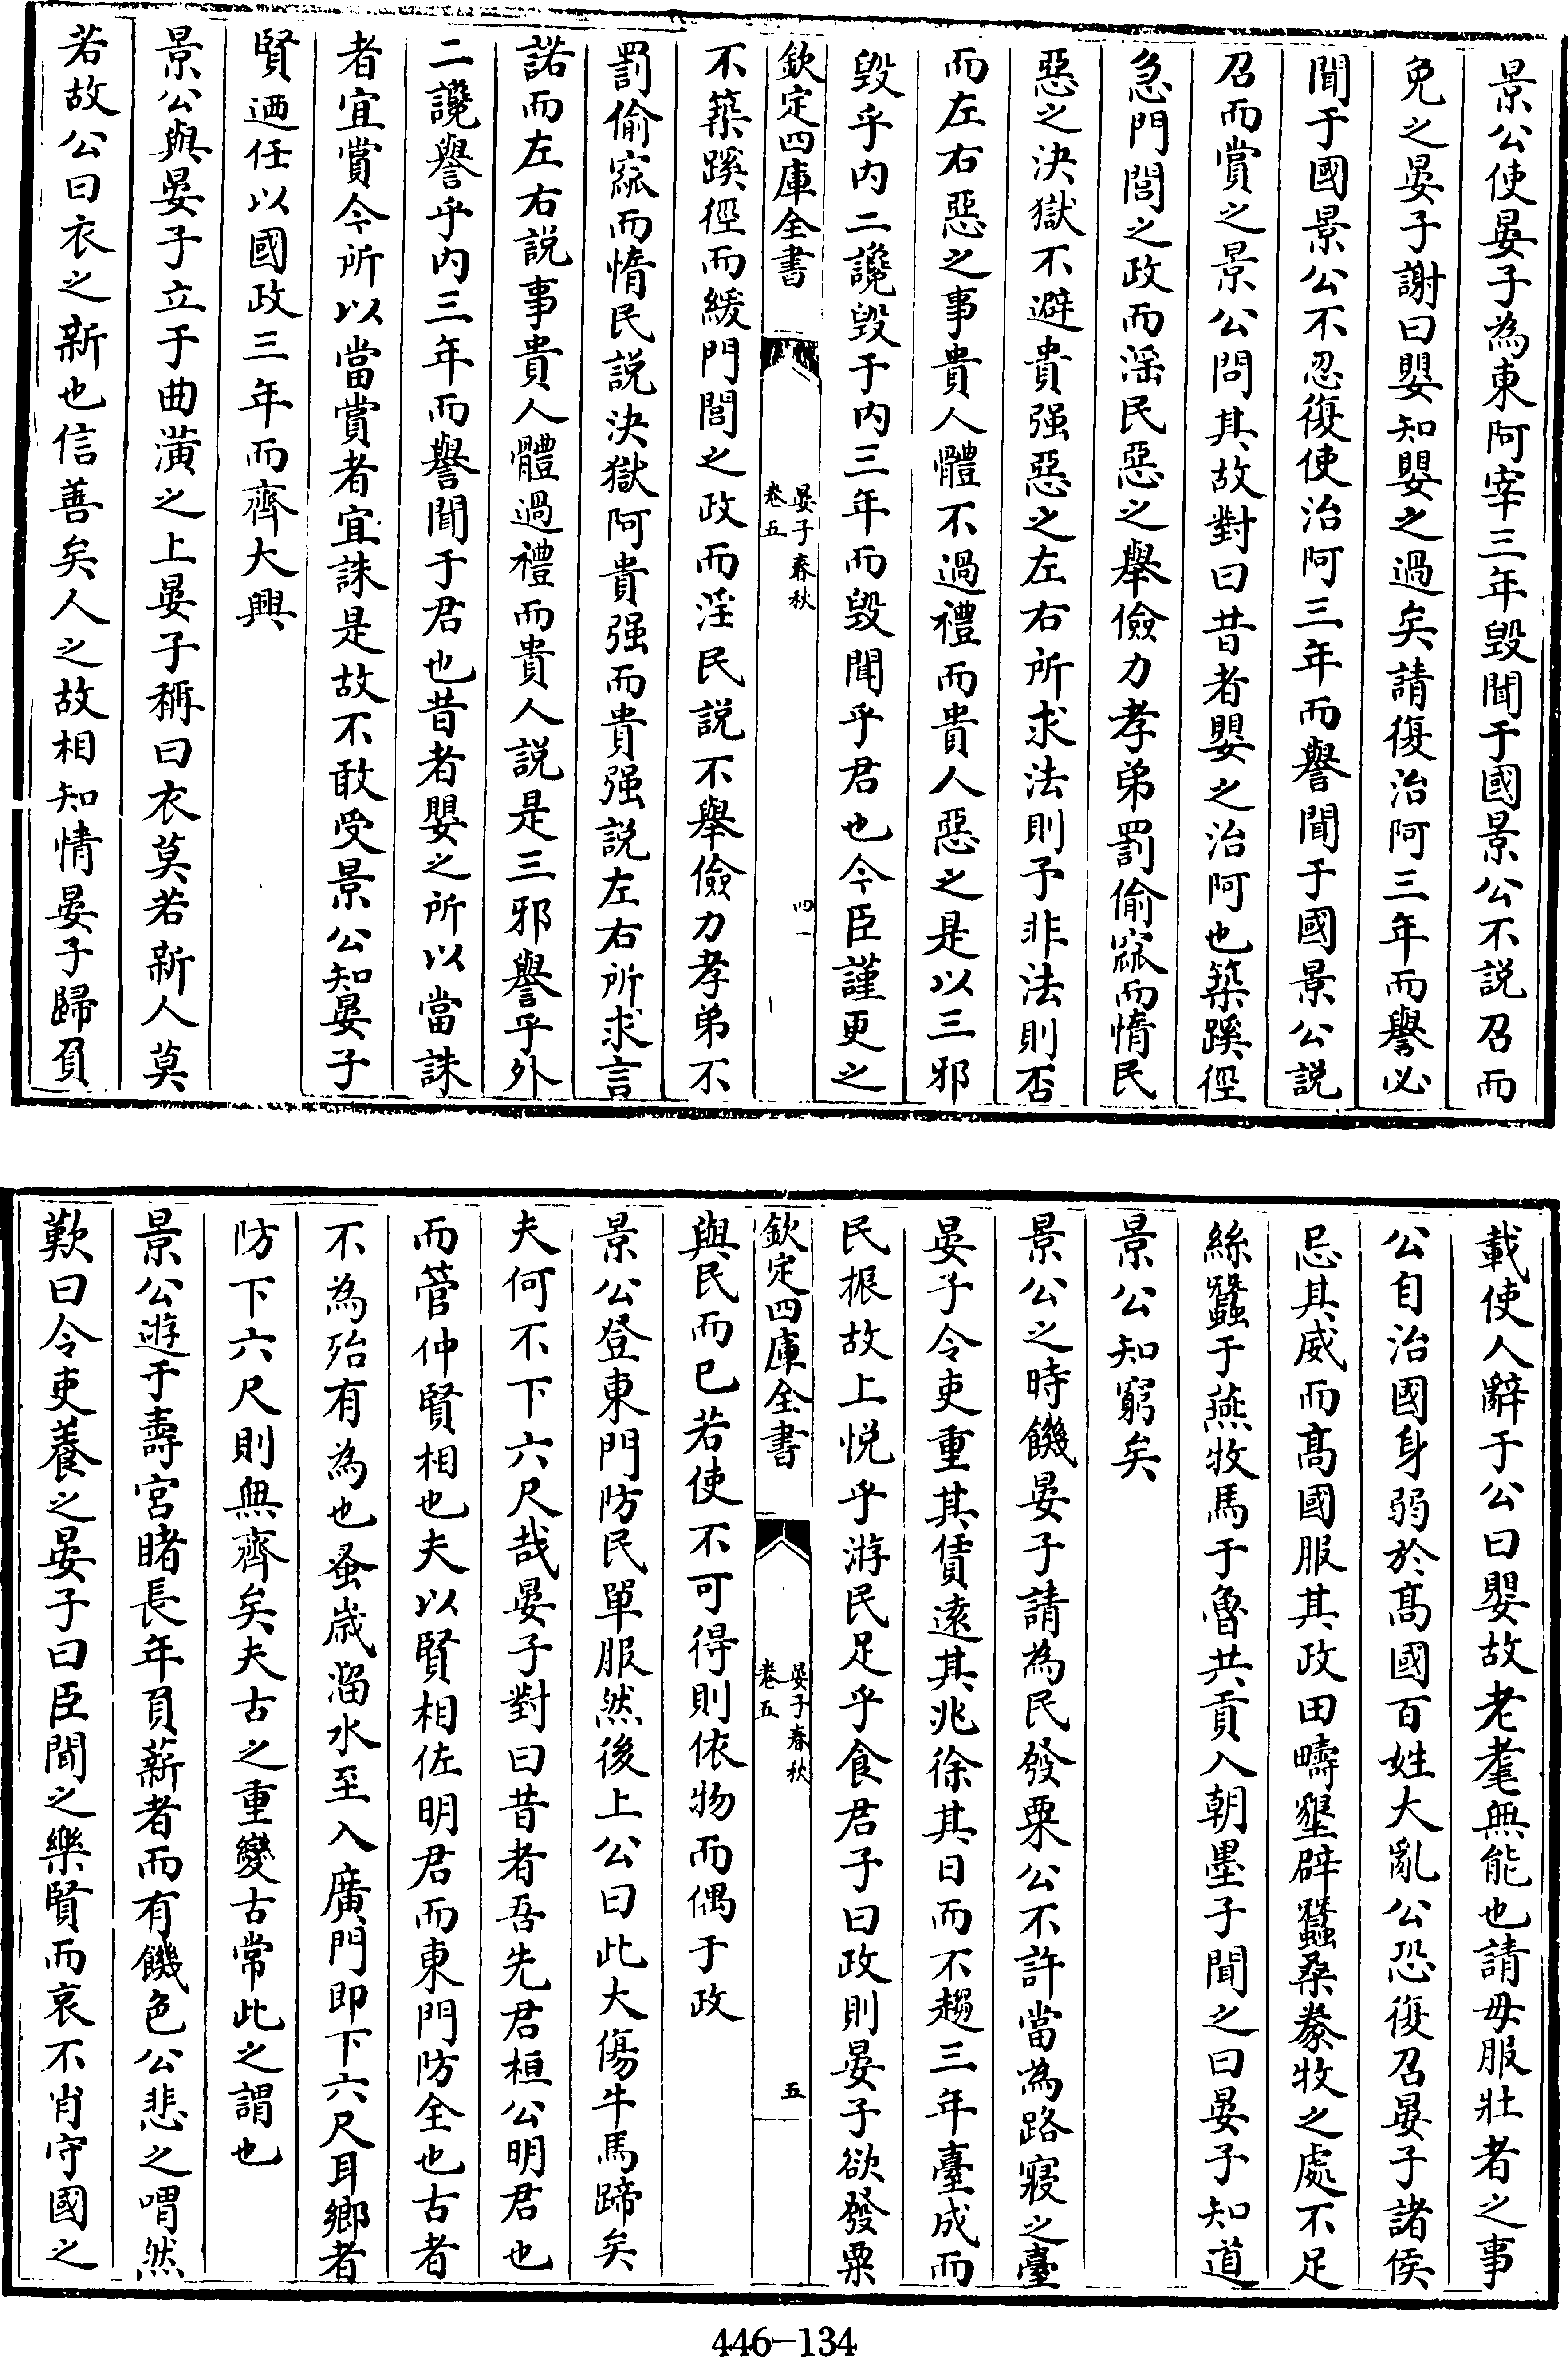 景公使晏子為東阿宰三年毀聞于國景公不説召而
免之晏子謝曰嬰知嬰之過矣請復治阿三年而譽必
聞于國景公不忍復使治阿三年而譽聞于國景公説
召而賞之景公問其故對曰昔者嬰之治阿也築蹊徑
急門閭之政而淫民惡之舉儉力孝弟罰偷窳而惰民
惡之決獄不避貴强惡之左右所求法則予非法則否
而左右惡之事貴人體不過禮而貴人惡之是以三邪
毀乎内二讒毀于内三年而毀聞乎君也今臣謹更之
欽定四庫全書
晏子春秋
卷五
四
不築蹊徑而緩門閭之政而淫民説不舉儉力孝弟不
罰偷窳而惰民説決獄阿貴强而貴强説左右所求言
諾而左右説事貴人體過禮而貴人説是三邪譽乎外
二讒譽乎内三年而譽聞于君也昔者嬰之所以當誅
者宜賞今所以當賞者宜誅是故不敢受景公知晏子
賢迺任以國政三年而齊大興
景公與晏子立于曲潢之上晏子稱曰衣莫若新人莫
若故公曰衣之新也信善矣人之故相知情晏子歸負
載使人辭于公曰嬰故老耄無能也請毋服壯者之事
公自治國身弱於髙國百姓大亂公恐復召晏子諸侯
忌其威而髙國服其政田疇墾辟蠶桑豢牧之處不足
絲蠶于燕牧馬于魯共貢入朝墨子聞之曰晏子知道
景公知窮矣
景公之時饑晏子請為民發粟公不許當為路寢之臺
晏子令吏重其賃遠其兆徐其日而不趨三年臺成而
民振故上悦乎游民足乎食君子曰政則晏子欲發粟
欽定四庫全書
晏子春秋
卷五
五
與民而已若使不可得則依物而偶于政
景公登東門防民單服然後上公曰此大傷牛馬蹄矣
夫何不下六尺哉晏子對曰昔者吾先君桓公明君也
而管仲賢相也夫以賢相佐明君而東門防全也古者
不為殆有為也蚤歳溜水至入廣門即下六尺耳鄉者
防下六尺則無齊矣夫古之重變古常此之謂也
景公遊于壽宮睹長年負薪者而有饑色公悲之喟然
歎曰令吏養之晏子曰臣聞之樂賢而哀不肖守國之
446-134